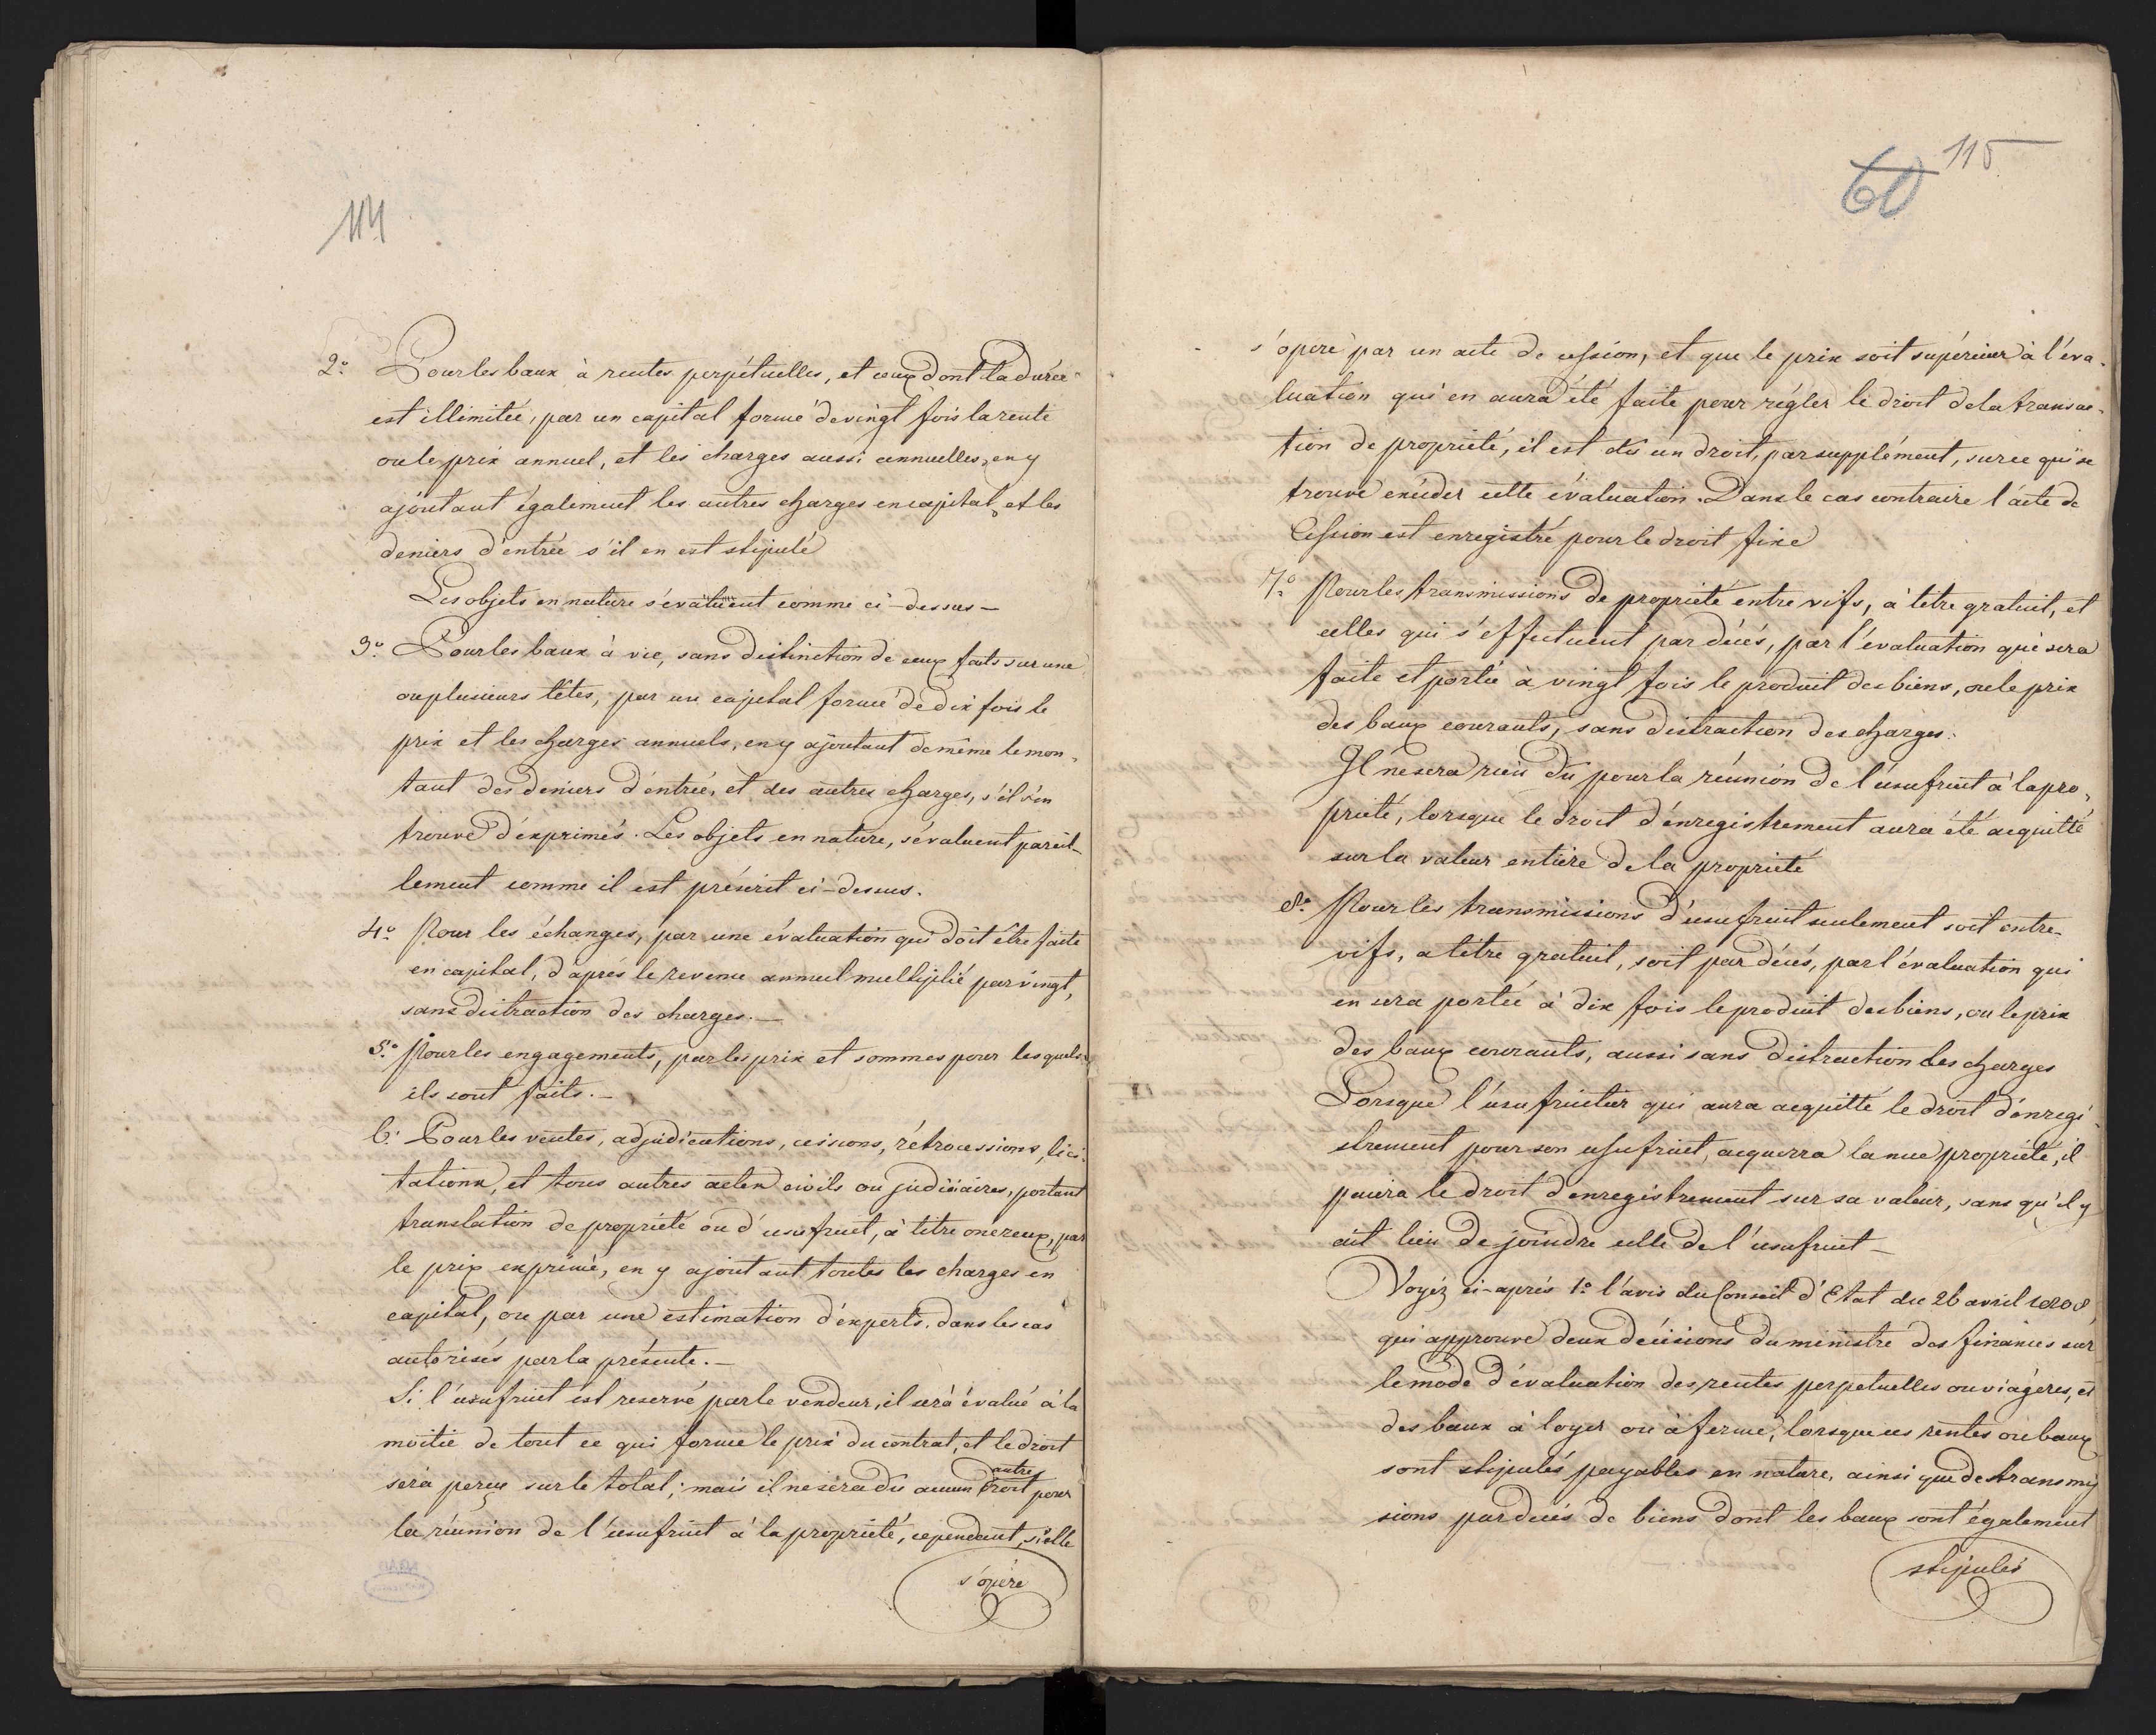 114
2.o Pour les baux à rentes perpétuelles, et ceux dont la durée
est illimitée, par un capital formé de vingt fois la rente
ou le prix annuel, et les charges aussi annuelles, en y
ajoutant également les autres charges en capital, et les
deniers d'entrée s'il en est stipulé
Les objets en nature s'évaluent comme ci-dessus —
3.o Pour les baux à vie, sans distinction de ceux faits sur une
ou plusieurs têtes, par un capital formé de dix fois le
prix et les charges annuels, en y ajoutant de même le mon-
tant des deniers d'entrée, et des autres charges, s'il s'en
trouve d'exprimés. Les objets en nature, s'évaluent pareil-
lement comme il est préscrit ci-dessus.
4.o Pour les échanges, par une évaluation qui doit être faite
en capital, d'après le revenu annuel multiplié par vingt,
sans distraction des charges. —
5.o Pour les engagements, par les prix et sommes pour lesquels
ils sont faits. —
6.o Pour les ventes, adjudications, cessions, rétrocessions, lici-
tations, et tous autres actes civils ou judiciaires, portant
translation de propriété ou d'usufruit, à titre onéreux, par
le prix exprimé, en y ajoutant toutes les charges en
capital, ou par une estimation d'experts, dans les cas
autorisés par la présente. —
Si l'usufruit est reservé par le vendeur, il sera évalué à la
moitié de tout ce qui forme le prix du contrat, et le droit
autre
sera perçu sur le total; mais il ne sera dû aucun droit pour
la réunion de l'usufruit à la propriété, cependant, si elle
s'opère
115
60
s'opere par un acte de cession, et que le prix soit supérieur à l'éva-
luation qui en aura été faite pour régler le droit de la transac-
tion de propriété, il est dû un droit, par supplément, sur ce qui se
trouve excéder cette évaluation. Dans le cas contraire l'acte de
Cession est enregistré pour le droit fixe
7.o Pour les transmissions de propriété entre vifs, à titre gratuit, et
celles qui s'effectuent par décés, par l'évaluation qui sera
faite et portée à vingt fois le produit des biens, ou le prix
des baux courants, sans distraction des charges.
Il ne sera rien dû pour la réunion de l'usufruit à la pro-
priété, lorsque le droit d'enregistrement aura été acquitté
sur la valeur entière de la propriété
8.o Pour les transmissions d'usufruit seulement soit entre-
vifs, a titre gratuit, soit par décés, par l'évaluation qui
en sera portée à dix fois le produit des biens, ou le prix
des baux courants, aussi sans distraction des charges
Lorsque l'usufruitier qui aura acquitté le droit d'enregi-
strement pour son usufruit, acquerra la nue propriété, il
paiera le droit d'enregistrement sur sa valeur, sans qu'il y
ait lieu de joindre celle de l'usufruit —
Voyéz ci-après 1o l'avis du Conseil d'Etat du 26 avril 1808
qui approuve deux décisions du ministre des finances sur
le mode d'évaluation des rentes perpetuelles ou viagères, et
des baux à loyer ou à ferme, lorsque ces rentes ou baux
sont stipulés payables en nature, ainsi que des transmis
sions par decés de biens dont les baux sont également
stipulés